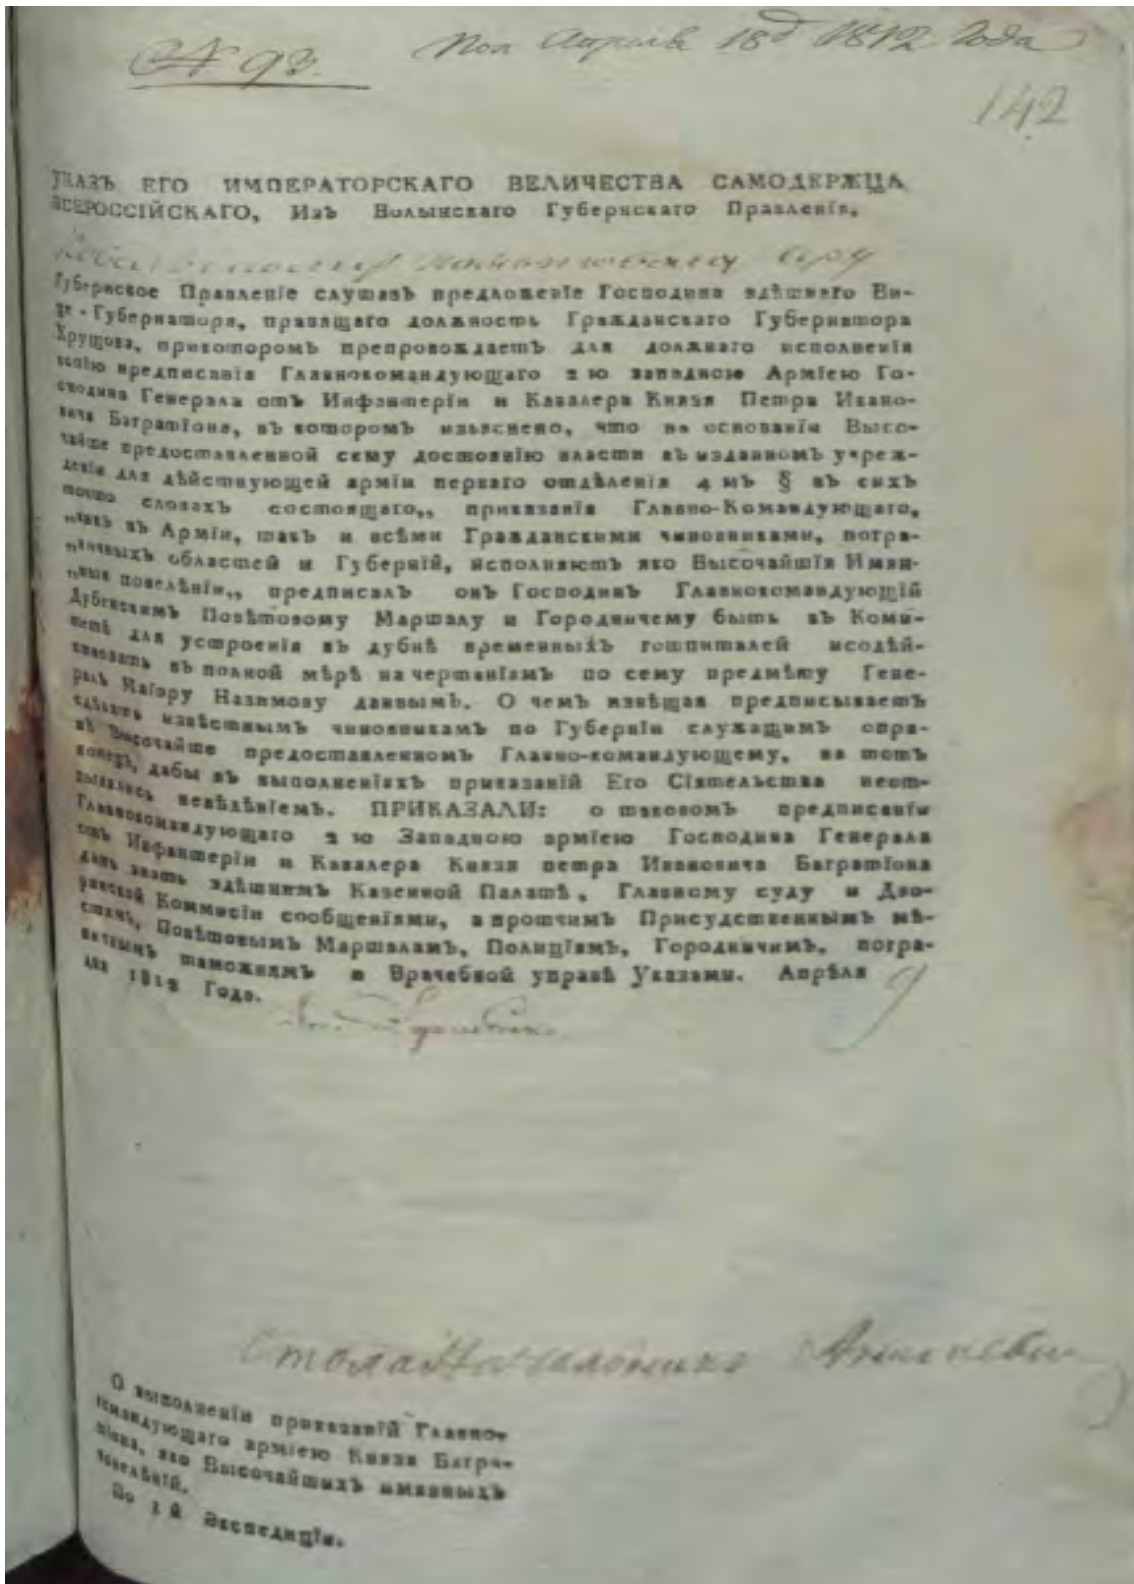 № 93.
Пол Апреля 18д 1812 Года
142
УКАЗЪ ЕГО ИМПЕРАТОРСКАГО ВЕЛИЧЕСТВА САМОДЕРЖЦА
ВСЕРОССІЙСКАГО, Изъ Волынскаго Губернскаго Правленія,
Губернское Правленіе слушавъ предложеніе Господина здѣшнего Ви-
це-Губернатора, правящаго должность Гражданскаго Губернатора
Хрущова, прикоторомъ препровождаетъ для должнаго исполненія
копію предписанія Главнокомандующаго 2 ю западною Арміею Го-
сподина Генерала отъ Инфантеріи и Кавалера Князя Петра Ивано-
вича Багратіона, въ которомъ изъяснено, что на основаніи Высо-
чайше предоставленной сему достоянію власти въ изданномъ учреж-
деніи для дѣйствующей арміи перваго отдѣленія 4 мъ § въ сихъ
точно словахъ состоящаго,, приказанія Главно-Командующаго,
„какъ въ Арміи, такъ и всѣми Гражданскими чиновниками, погра-
„ничныхъ областей и Губерній, исполняютъ яко Высочайшія Имян-
„ныя повелѣніи,, предписалъ онъ Господинъ Главнокомандующій
Дубенскимъ Повѣтовому Маршалу и Городничему быть въ Коми-
тетѣ для устроенія въ дубнѣ временныхъ гошпиталей исодѣй-
ствовать въ полной мѣрѣ начертаніямъ по сему предмѣту Гене-
ралъ Маіору Назимову даннымъ. О чемъ извѣщая предписываетъ
сдѣлать извѣстнымъ чиновникамъ по Губерніи служащимъ опра-
вѣ Высочайше предоставленномъ Главно-командующему, на тотъ
конецъ, дабы въ выполненіяхъ приказаній Его Сіятельства неот-
зывались невѣдѣніемъ. ПРИКАЗАЛИ: о таковомъ предписаніи
Главнокомандующаго 2 ю Западною арміею Господина Генерала
отъ Инфантеріи и Кавалера Князя петра Ивановича Багратіона
дать знать здѣшнимъ Казенной Палатѣ, Главному суду и Дво-
рянской Коммисіи сообщеніями, а протчимъ Присудственнымъ мѣ-
стамъ, Повѣтовымъ Маршаламъ, Полиціямъ, Городничимъ, погра-
ничнымъ таможнямъ и Врачебной управѣ Указами. Апрѣля 9
дня 1812 Года.
О выполненіи приказаній Главно-
командующаго арміею Князя Багра-
тіона, яко Высочайшихъ имянныхъ
повелѣній.
По 1 й Экспедиціи.